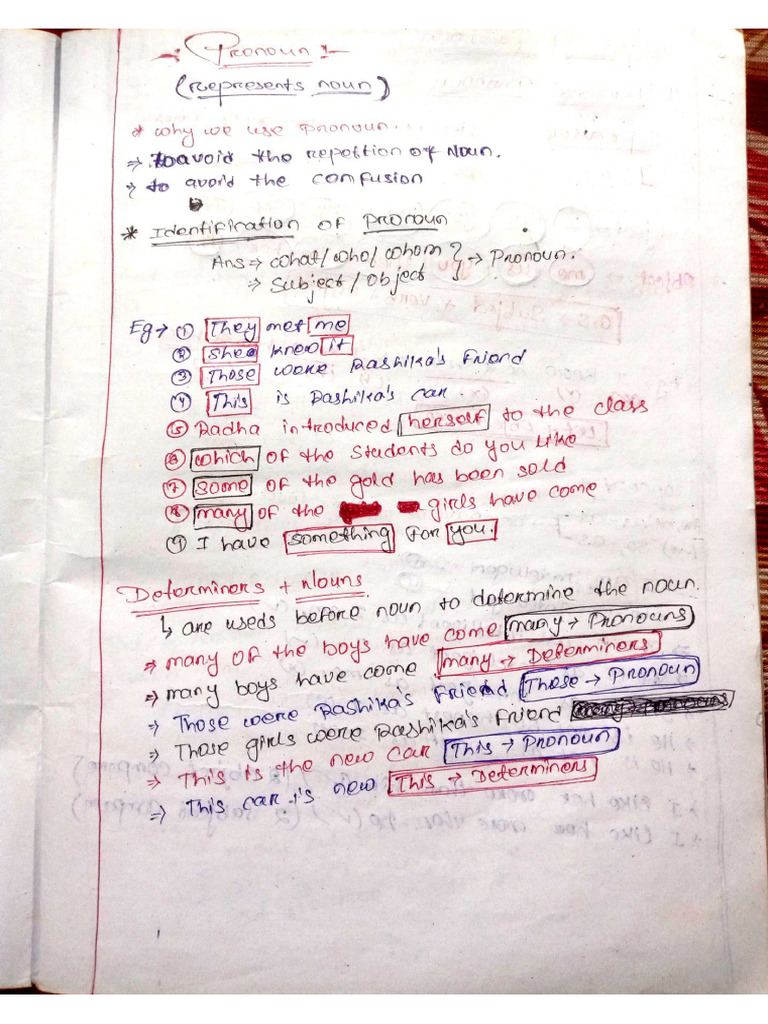 -: Pronoun :-
(Represents noun)
* why we use Pronoun.
⇒ to avoid the repettion of Noun.
⇒ to avoid the confusion
* Identifination of Pronoun
Ans ⇒ what/who/whom } → Pronoun.
⇒ Subject/Object
Eg → ① They met me
② She knew it
③ Those were Rashika's Friend
④ This is Rashika's car.
⑤ Radha introduced herself to the class
⑥ which of the students do you like
⑦ some of the gold has been sold
⑧ many of the girls have come
⑨ I have something for you.
Determiners + Nouns
↳ are useds before noun to determine the noun.
⇒ many of the boys have come many → Pronouns
⇒ many boys have come many → Determiners
⇒ Those were Rashika's Friend Those → Pronoun
⇒ Those girls were Rashika's Friend
⇒ This is the new car This → Pronoun
⇒ This car is new This → Determiners